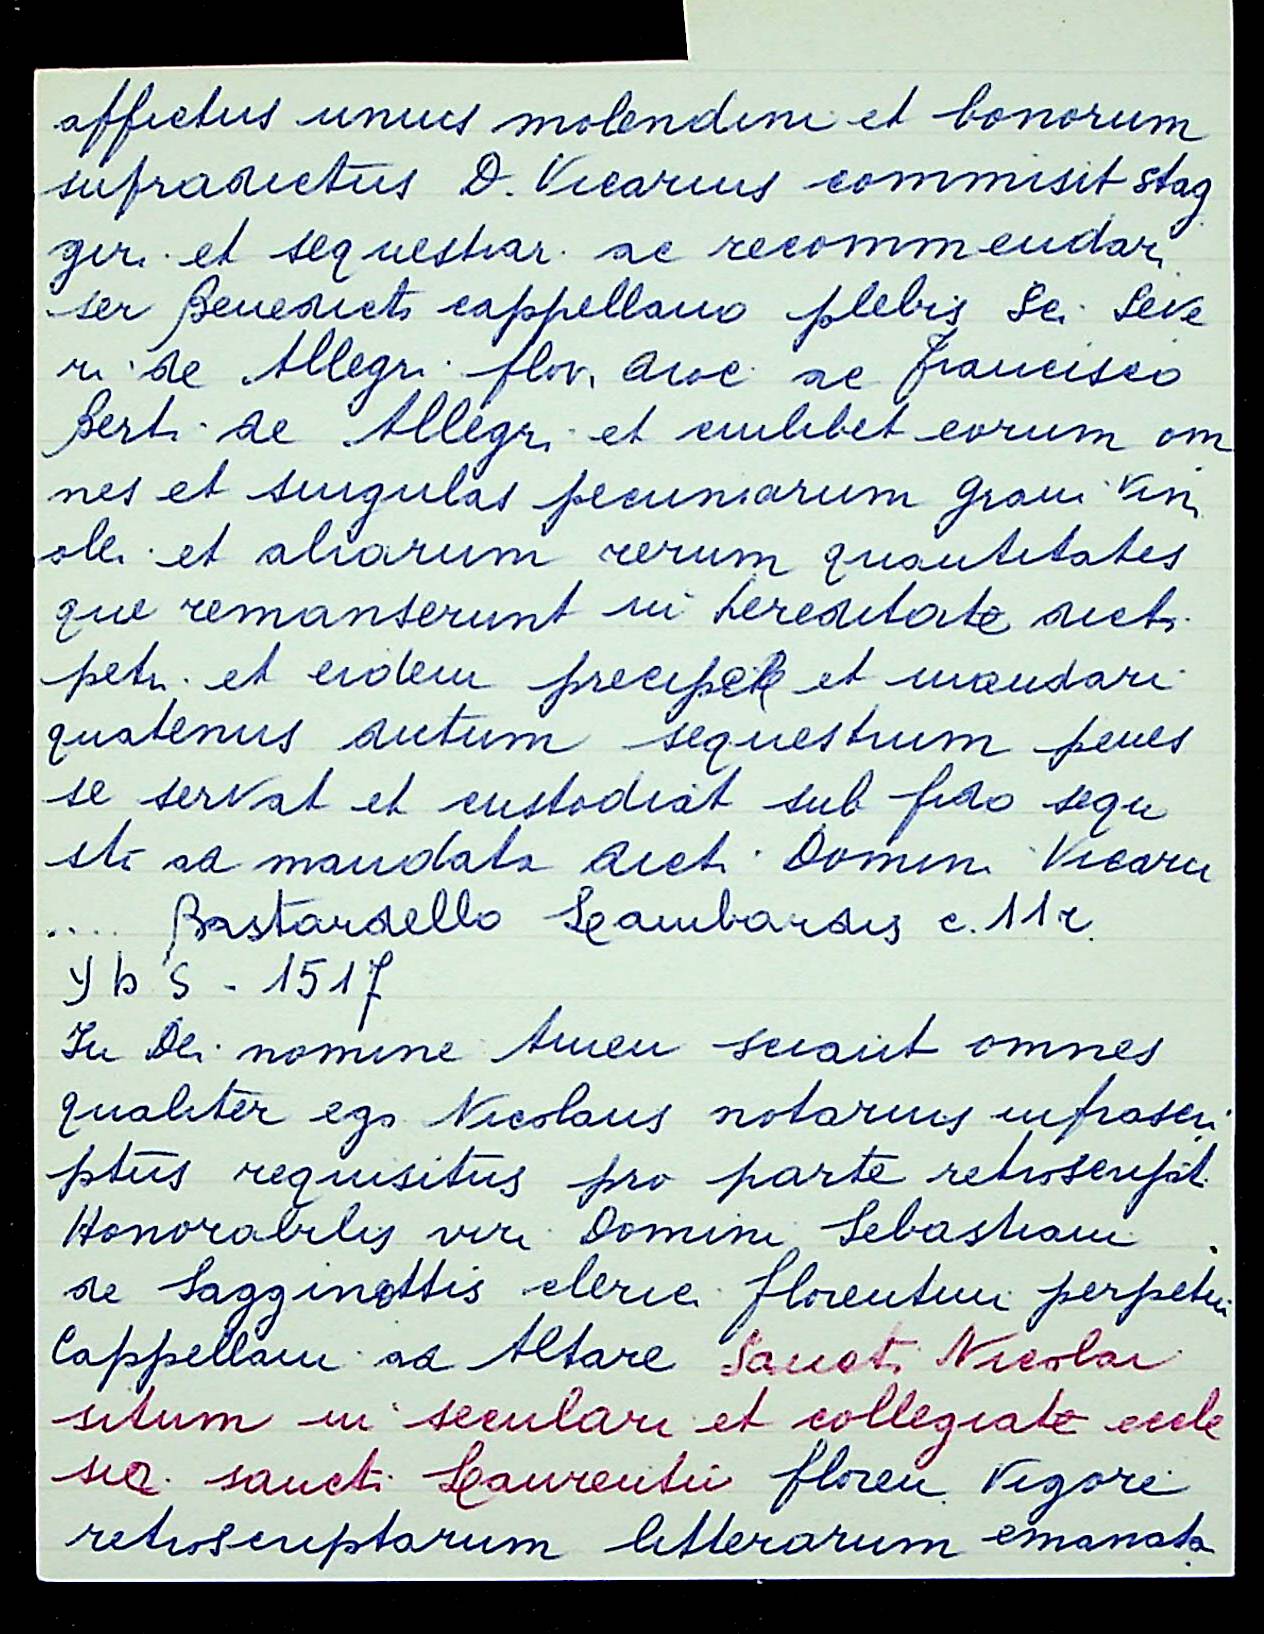 affictus unius molendini et bonorum
supradictus D. Vicarius commisit stag
giri et sequestrar. ac recommendari
ser Benedicti cappellano plebis Sci. Seve
ri de Allegri flor. dioc ac Francisco
Berti de Allegri et cuilibet eorum om
nes et singulas pecuniarum grani vini
olei et aliarum rerum quantitates
que remanserunt in hereditate dicti
petri et eidem precipere et mandari
quatenus dictum sequestrum penes
se servat et custodiat sub fido sequ
stri ad mandata dicti Domini Vicarii
.... Bastardello Lambardis c. 11 r.
1517
In Dei nomine Amen sciant omnes
qualiter ego Nicolaus notarius infrascri
ptus requisitus pro parte retroscript.
Honorabilis viri Domini Sebastiani
de Sagginottis clerici florentini perpetui
Cappellani ad Altare Sancti Nicolai
situm in seculari et collegiate eccle
sia sancti Laurentii floren. Vigore
retroscriptarum litterarum emanata